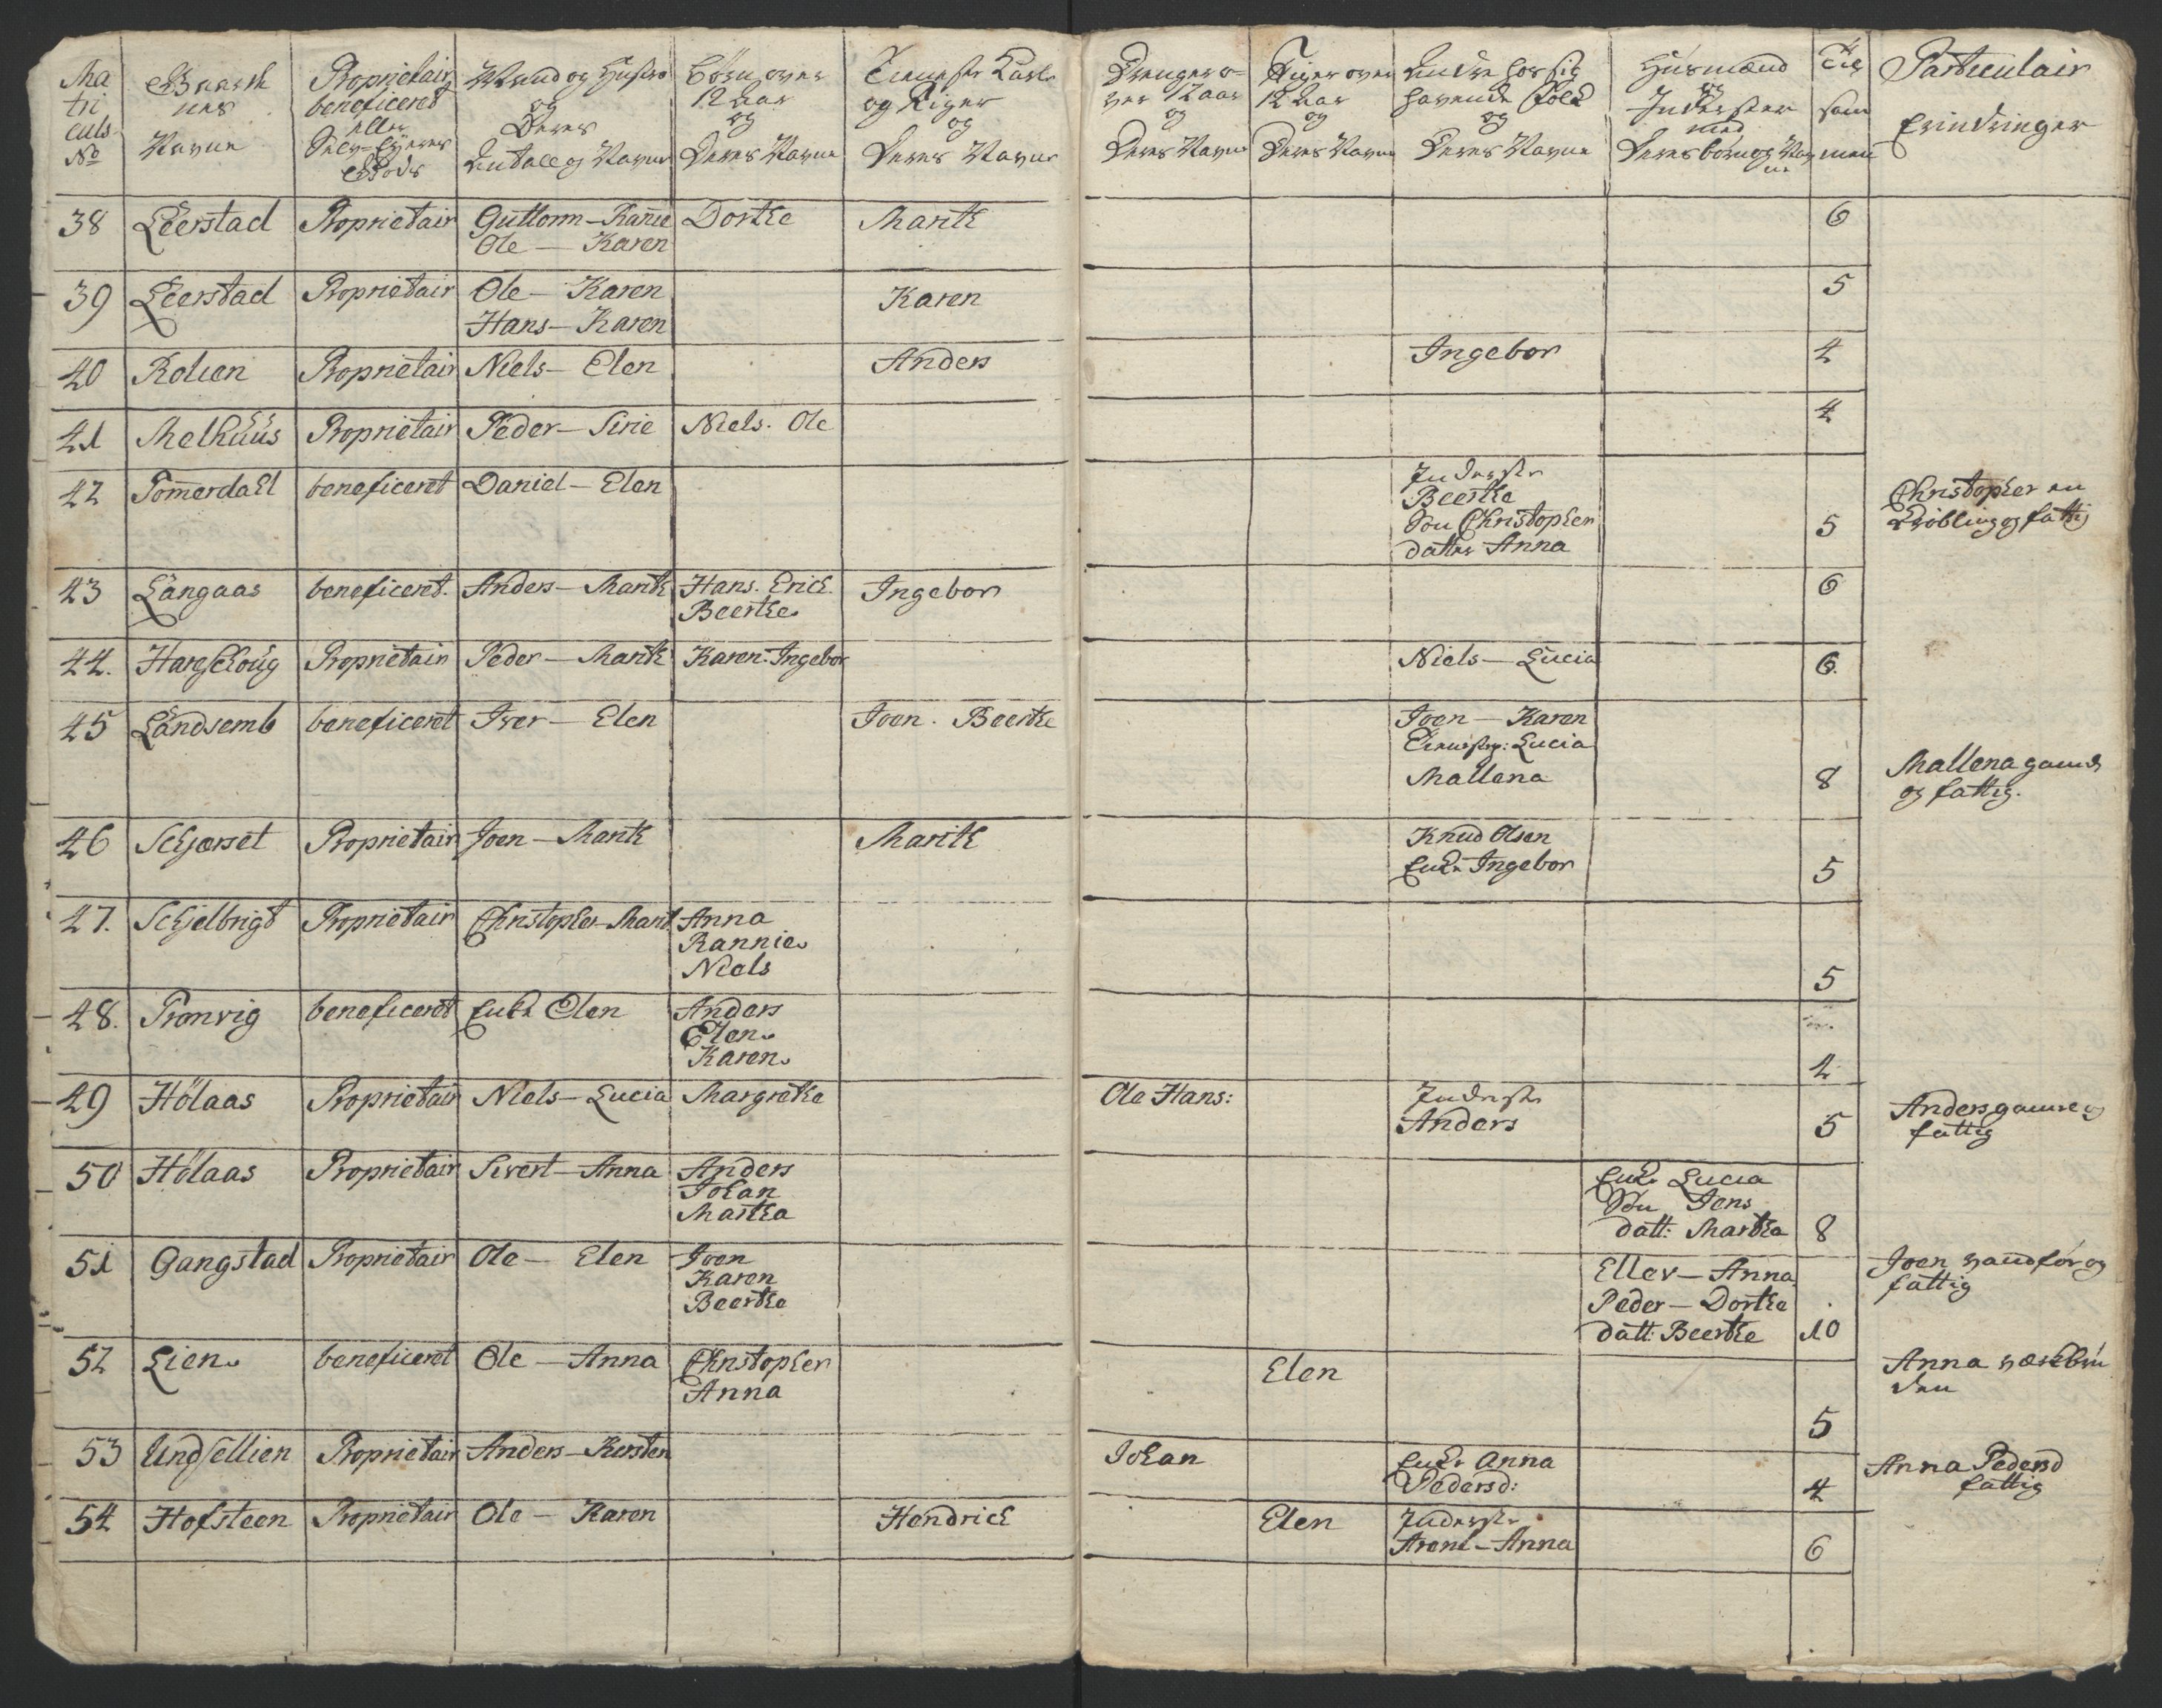 Ma
tri
culs
No
Gaarde
nes
Navne
Proprietair
beneficeret
eller
Selv-Eyeres
Gods
Mand og Hustroe
og
Deres
Antall og Navne
Børn over
12 Aar
og
Deres Navne
Tieneste Karle
og Piger
og
Deres Navne
Drenge o-
ver 12 aar
og
Deres Navne
Piger over
12 Aar
og
Deres Navne
Andre hos sig
havende Folk
og
Deres Navne
Huusmænd
og
Inderster
med
Deres børn og Nav
ne
Til
sam
men
Particulair
Erindringer
38 Leerstad Proprietair Guttorm - Rannie Dorthe Marith 6
Ole - Karen
39 Leerstad Proprietair Ole - Karen Karen 5
Hans - Karen
40 Rolien Proprietair Niels - Elen Anders Ingebor 4
41 Melhuus Proprietair Peder - Sirie Niels. Ole 4
42 Tømerdahl beneficeret Daniel - Elen Inderste
Beerthe
Søn Christopher
datter Anna 5
Christopher en
Krøbling og fattig
43 Langaas beneficeret. Anders - Marith Hans. Erich. Ingebor 6
Beerthe
44. Hargschoug Proprietair Peder - Marith Karen. Ingebor Niels - Lucia 6.
45 Landsemb beneficeret Iver - Elen Joen. Beerthe Joen - Karen
Tienistep: Lucia
Mallena 8
Mallena gamel
og fattig.
46 Schjerset Proprietair Joen - Marith Marith Knud Olsen
Enke Ingebor 5
47. Schjelbrigt Proprietair Christopher - Marit Anna
Rannie
Niels 5
48. Tronvig beneficeret Enke Elen Anders
Elen
Karen 4
49 Hølaas Proprietair Niels - Lucia Margrethe Ole Hans: Inderste
Anders 5
Anders gamel og
fattig
50 Hølaas Proprietair Sivert - Anna Anders
Johan
Martha
Enke Lucia
Søn Jens
datt: Martha 8
51 Gangstad Proprietair Ole - Elen Joen
Karen
Beerthe
Ellev - Anna
Peder - Dorthe
datt: Beerthe 10
Joen vanfør og
fattig
52 Lien beneficeret Ole - Anna Christopher
Anna
Elen
5
Anna værkbru
den
53 Undsellien Proprietair Anders - Kirsten Johan Enke Anna
Pedersd: 4
Anna Pedersd
fattig
54 Hofsteen Proprietair Ole - Karen Hendrich Elen Inderste
Arent - Anna 6